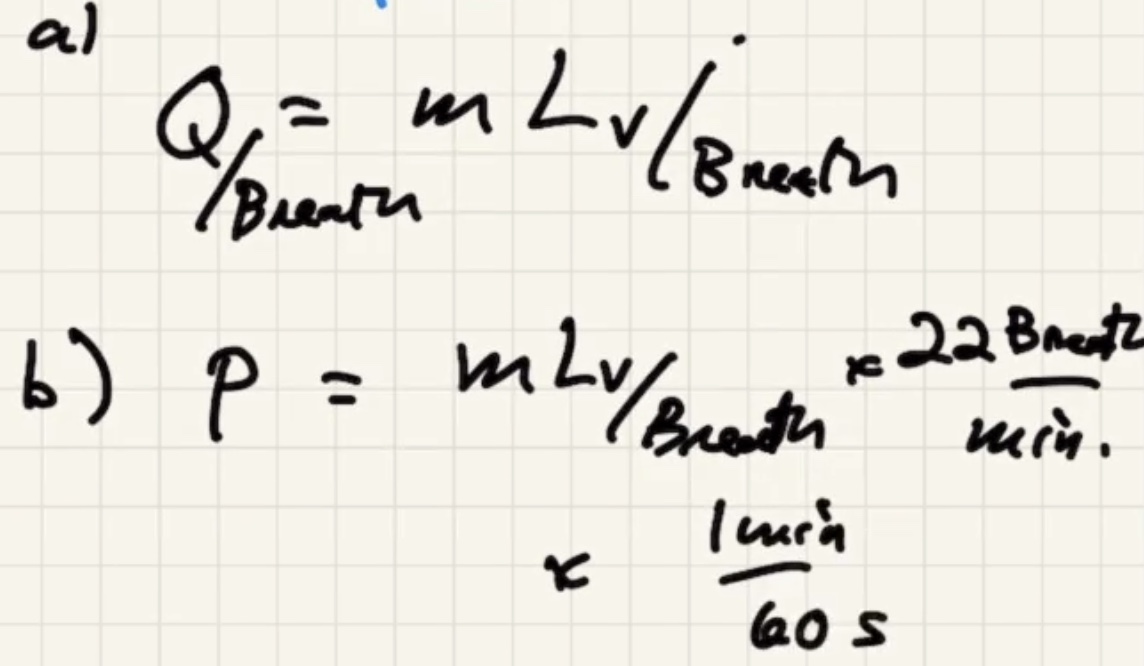 a)
Q/Breath = m Lv/Breath
b) P = m Lv/Breath × 22 Breath/min.
× 1 min/60 s